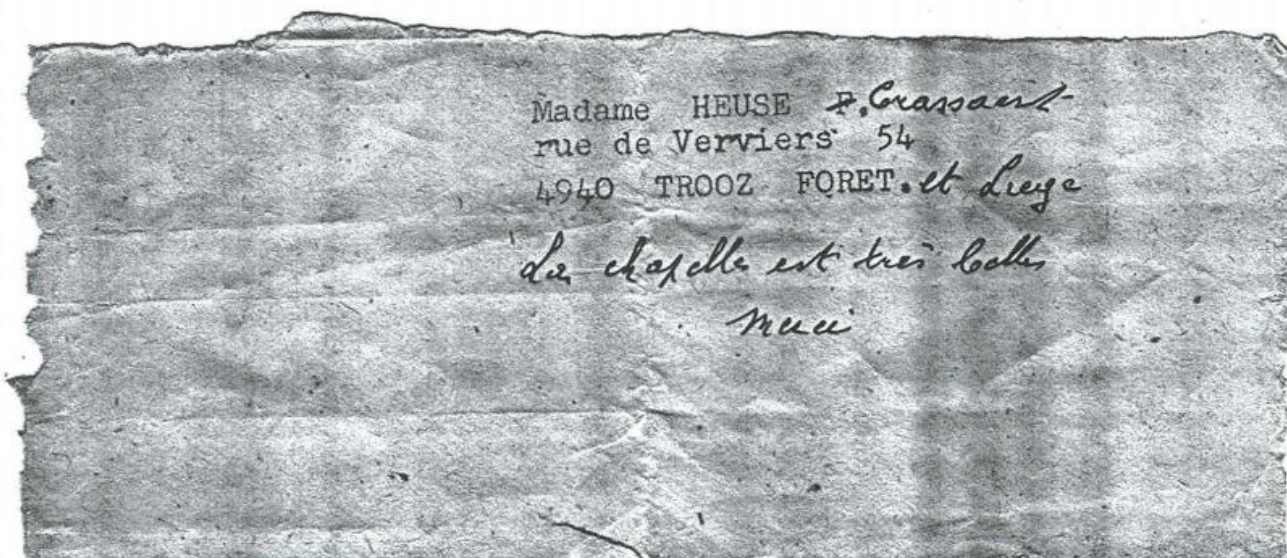 Madame HEUSE F. Crassaert
rue de Verviers 54
4940 TROOZ FORET. et Liege
La chapelle est très belle
merci